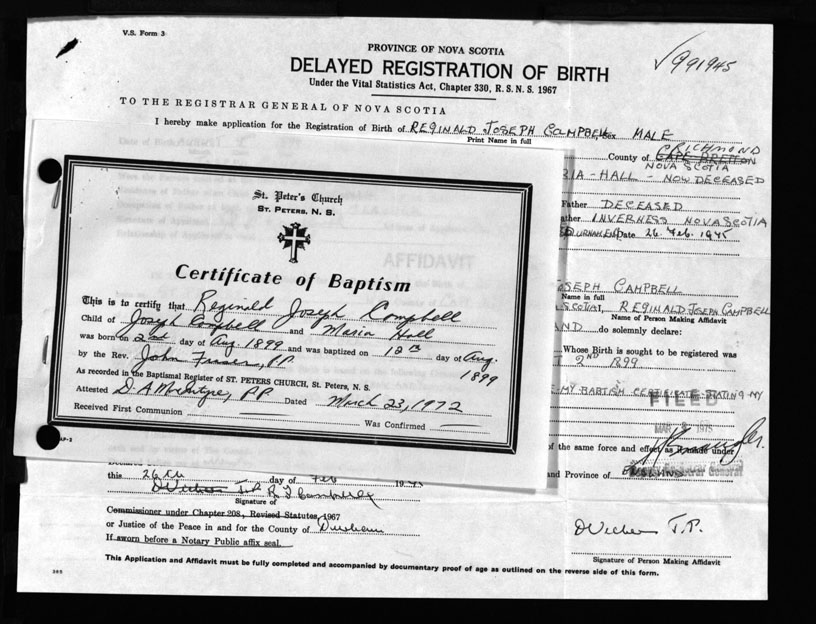 V.S. Form 3
PROVINCE OF NOVA SCOTIA
DELAYED REGISTRATION OF BIRTH
Under the Vital Statistics Act, Chapter 330, R. S. N. S. 1967
√991945
TO THE REGISTRAR GENERAL OF NOVA SCOTIA
I hereby make application for the Registration of Birth of REGINALD JOSEPH CAMPBELL, Sex MALE
Print Name in full
RICHMOND
County of CAPE BRETON
NOVA SCOTIA
RIA - HALL - NOW DECEASED
Father DECEASED
ather INVERNESS NOVA SCOTIA
Date 26 Feb. 1975
AFFIDAVIT
St. Peter's Church
ST. PETERS, N. S.
Certificate of Baptism
This is to certify that Reginald Joseph Campbell
Child of Joseph Campbell and Maria Hall
was born on 2nd day of Aug. 1899 and was baptized on 12th day of Aug.
1899
by the Rev. John Fraser, P.P.
As recorded in the Baptismal Register of ST. PETERS CHURCH, St. Peters, N. S.
Attested D. A. McIntyre, P.P. Dated March 23, 1972
Received First Communion
Was Confirmed
AF-2
OSEPH CAMPBELL
Name in full
SCOTIA, REGINALD JOSEPH CAMPBELL
Name of Person Making Affidavit
AND do solemnly declare:
Whose Birth is sought to be registered was
2ND 1899
MY BABTISM CERTIFICATE STATING MY
FILED
1975
of the same force and effect as if made under
and Province of
this 26th day of Feb 1975
Signature of
Commissioner under Chapter 208, Revised Statutes, 1967
or Justice of the Peace in and for the County of Durham
If sworn before a Notary Public affix seal.
J.P.
Signature of Person Making Affidavit
This Application and Affidavit must be fully completed and accompanied by documentary proof of age as outlined on the reverse side of this form.